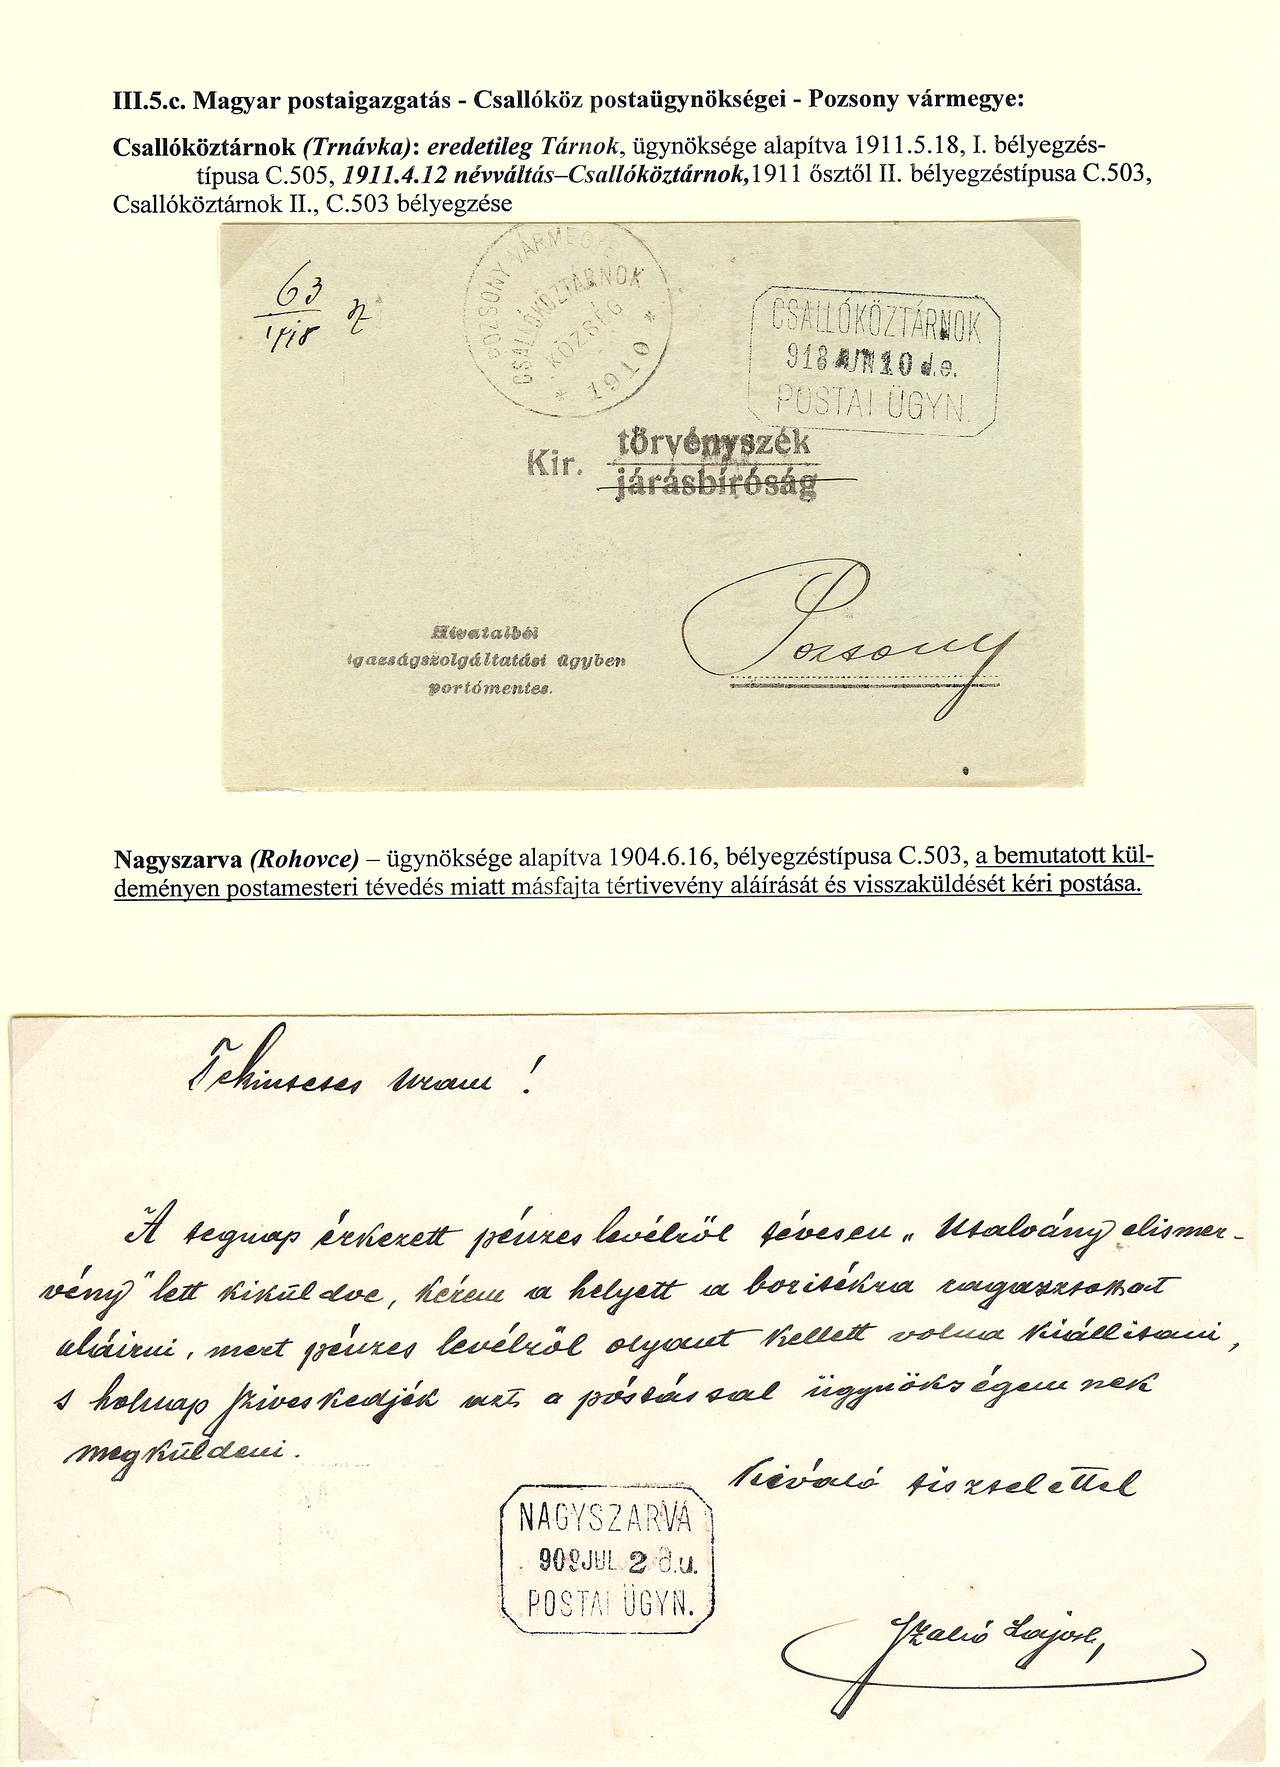 III.5.c. Magyar postaigazgatás - Csallóköz postaügynökségei - Pozsony vármegye:
Csallóköztárnok (Trnávka): eredetileg Tárnok, ügynöksége alapítva 1911.5.18, I. bélyegzés-
típusa C.505, 1911.4.12 névváltás–Csallóköztárnok,1911 ősztől II. bélyegzéstípusa C.503,
Csallóköztárnok II., C.503 bélyegzése
63
918
POZSONY VÁRMEGYE
CSALLÓKÖZTÁRNOK
KÖZSÉG
* 1910 *
CSALLÓKÖZTÁRNOK
918 JUN 10 d.e.
POSTAI ÜGYN.
Kir. törvényszék
járásbíróság
Pozsony
Hivatalból
igazságszolgáltatási ügyben
portómentes.
Nagyszarva (Rohovce) – ügynöksége alapítva 1904.6.16, bélyegzéstípusa C.503, a bemutatott kül-
deményen postamesteri tévedés miatt másfajta tértivevény aláírását és visszaküldését kéri postása.
Tekintetes uram!
A tegnap érkezett pénzes levélről tévesen „Utalvány elismer-
vény" lett kiküldve, kérem a helyett a boritékra ragasztottat
aláirni, mert pénzes levélről olyant kellett volna kiállitani,
s holnap sziveskedjék azt a póstással ügynökségemnek
megküldeni.
Kiváló tisztelettel
NAGYSZARVA
909 JUL 2 d.u.
POSTAI ÜGYN.
Szabó Lajos